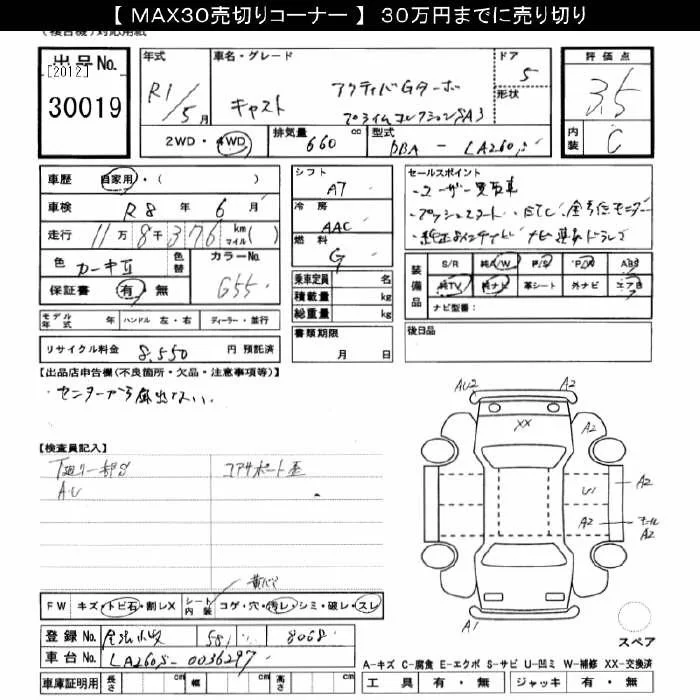 【 MAX30売切りコーナー 】 30万円までに売り切り
出品No.
[2012]
30019
年式 車名・グレード ドア 評価点
R1/5月 キャスト アクティバGターボ 5 3.5
プライムコレクションSA3 形状
2WD・4WD 排気量 660 cc 型式 DBA - LA260S 内装 C
車歴 自家用・( )
車検 R8年 6月
走行 11万8千376 km マイル ( )
色 カーキⅡ 色替 カラーNo. G55
保証書 有・無
シフト AT
冷房 AAC
燃料 G
乗車定員 名
積載量 kg
総重量 kg
書類期限
月 日
セールスポイント
・ユーザー買取車
・プッシュスタート
装備品 S/R 純A/W P/S P/W ABS
純TV 純ナビ 革シート 外ナビ エアB
ナビ型番:
後日品
モデル年式 年 ハンドル 左・右 ディーラー・並行
リサイクル料金 8,550 円 預託済
【出品店申告欄(不良箇所・欠品・注意事項等)】
・センターから届出ない。
【検査員記入】
下廻り一部S コアサポート歪
A・U
AU2 A2
XX A2
U1 A2
A2 A2
A1
スペア
FW キズ・トビ石・割レX シート内装 コゲ・穴・汚レ・シミ・破レ・スレ
登録No. 581 8068
車台No. LA260S-0036297
車庫証明用 長さ cm 幅 cm 高さ cm
A-キズ C-腐食 E-エクボ S-サビ U-凹ミ W-補修 XX-交換済
工具 有・無 ジャッキ 有・無